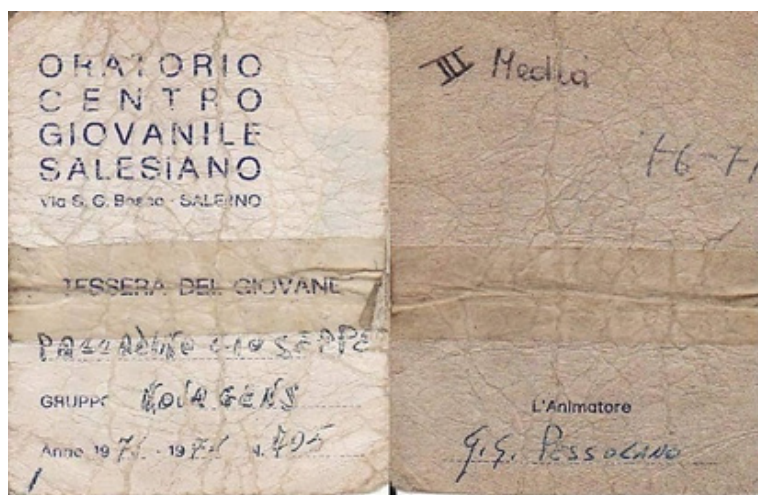 ORATORIO
CENTRO
GIOVANILE
SALESIANO
Via S. G. Bosco - SALERNO
TESSERA DEL GIOVANE
GIUSEPPE
GRUPPO NOVA GENS
Anno 197 - 197 N.
III Media
L'Animatore
G.G. PESSOLANO